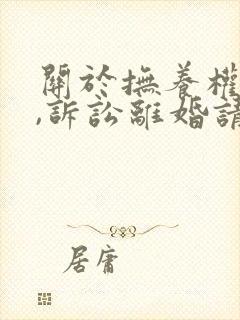 關於撫養權
,訴訟離婚請
居庸